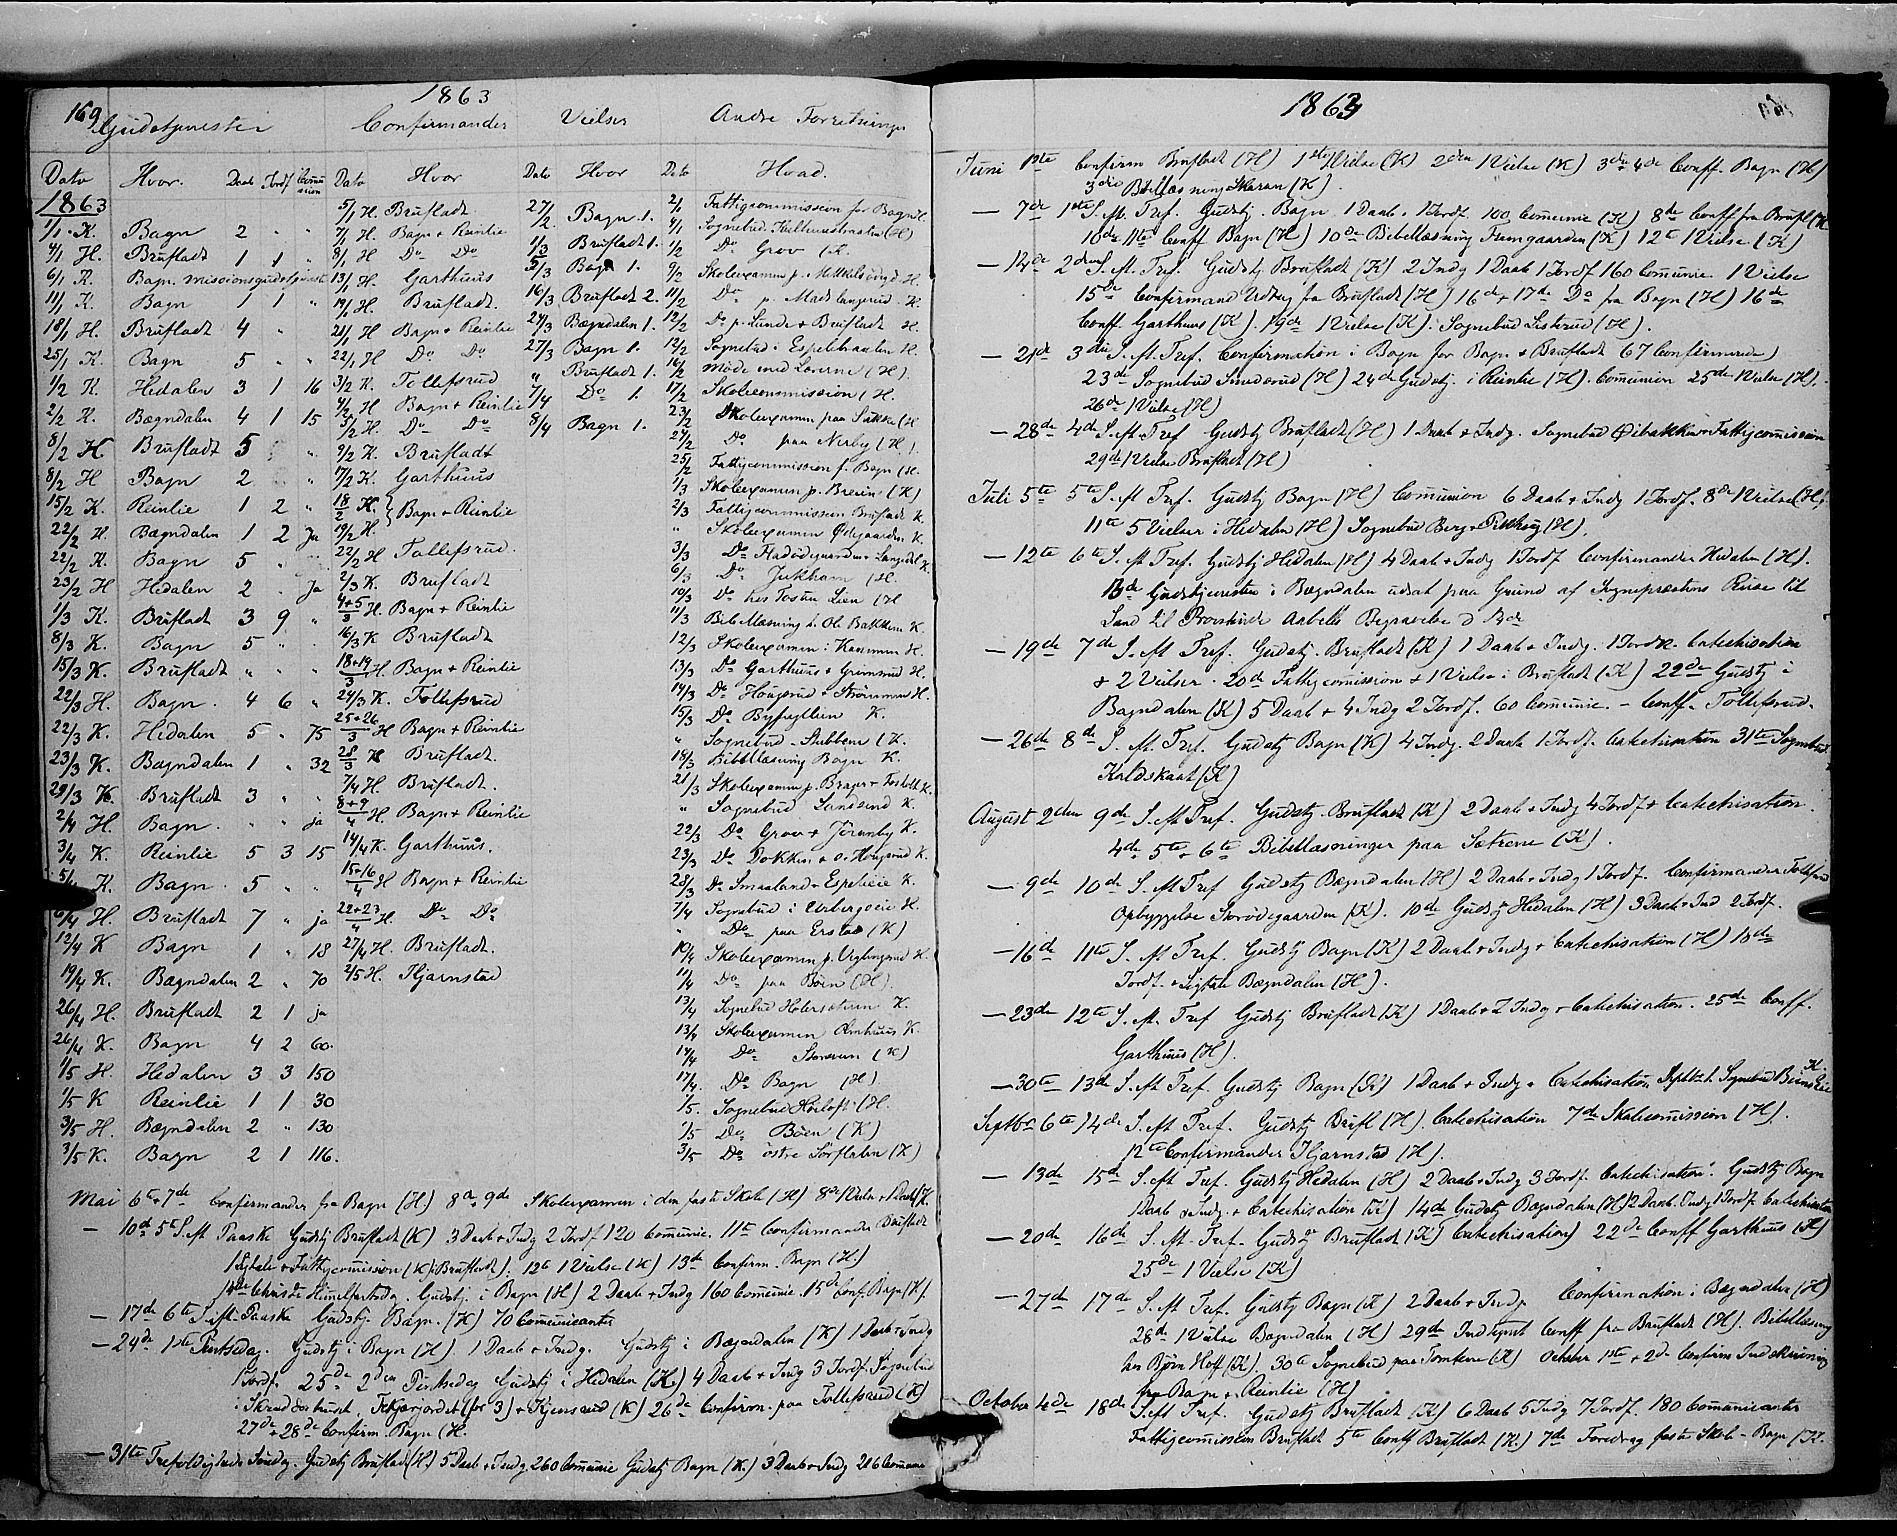 169
1863
Gudstjenester Confirmander Vielser Andre Forretninger
Dato Hvor. Daab Jordf Communion Dato Hvor Dato Hvor Dato Hvad.
1863
1/1 K. Bagn 2 " "
4/1 H. Brufladt 1 1 "
6/1 K. Bagn. missionsgudstjeneste
11/1 K. Bagn 1 1 "
18/1 H. Brufladt 4 "
25/1 K. Bagn 5 " "
1/2 K. Hedalen 3 1 16
2/2 K. Bægndalen 4 1 15
8/2 K Brufladt 5 "
8/2 H Bagn 2 "
15/2 K. Reinlie 1 2 "
22/2 H. Bægndalen 1 2 Ja
22/2 K. Bagn 5 "
23/2 H Hedalen 2 . Ja
1/3 K. Brufladt 3 9 "
8/3 K. Bagn 5 " .
15/3 K. Brufladt " " "
22/3 H. Bagn. 4 6 "
22/3 K. Hedalen 5 " 75
23/3 K. Bægndalen 1 " 32
29/3 K. Brufladt 3 " "
2/4 H. Bagn. " " ja
3/4 K. Reinlie 5 3 15
5/4 K. Bagn. 5 " "
6/4 H. Brufladt 7 " ja
12/4 K Bagn 1 " 18
19/4 K. Bægndalen 2 " 70
26/4 H. Brufladt 2 1 ja
26/4 K. Bagn 4 2 60.
1/5 H. Hedalen 3 3 150
1/5 K Reinlie 1 1 30
3/5 H. Bægndalen 2 " 130
3/5 K. Bagn 2 1 116.
5/1 H. Brufladt
7/1 H. Bagn + Reinlie
8/1 H Do Do
13/1 H. Garthuus
19/1 H. Brufladt.
21/1 H Bagn + Reinlie
22/1 H Do Do
3/2 K. Tollefsrud
4/2 H Bagn + Reinlie
5/2 H. Do Do
9/2 K. Brufladt
17/2 K. Garthuus
18/2 K. } Bagn + Reinlie
19/2 H.
22/2 H Tollefsrud.
2/3 K. Brufladt
4+5/3 H. Bagn + Reinlie
16/3 K Brufladt
18+19/3 H. Bagn + Reinlie
24/3 K. Tollefsrud
25+26/3 H Bagn + Reinlie
28/3 K Brufladt.
7/4 H. Brufladt.
8+9/4 H Bagn + Reinlie
14/4 K. Garthuus.
15+16/4 H Bagn + Reinlie
22+23/4 H. Do Do
27/4 H. Brufladt.
2/5 H. Hjarnstad
27/2 Bagn. 1.
1/3 Brufladt 1.
5/3 Bagn 1.
16/3 Brufladt 2.
24/3 Bægndalen 1.
27/3 Bagn 1.
" Brufladt 1.
7/4 Do 1.
8/4 Bagn 1.
2/1 Fattigcommission for Bagn H.
4/1 Sognebud (H)
1/2 Do Grov (K.
9/2 Skolexamen p. H.
11/2 Do p. Mads K.
12/2 Do p. Lunde + Brufladt H.
12/2 Sognebud i H.
14/2 Møde med Lærerne (H).
17/2 Skolecommission (H.
23/2 Skolexamen paa (H
24/2 Do paa Nerby (H).
25/2 Fattigcommission f. Bagn (H.
1/3 Skolexamen p. Breien (K)
2/3 Fattigcommission Brufladt K.
" Skolexamen Ødegaarden K.
3/3 Do K.
6/3 Do (H.
10/3 Do hos Tosten Lien (H
11/3 Bibellæsning h. Ol. Bakken K.
12/3 Skolexamen i H.
13/3 Do Garthuus + Grimsrud H.
14/3 Do Haugsrud + Strømmen H.
15/3 Do Byfuglien K.
" Sognebud Stubben (K.
18/3 Bibellæsning Bagn K.
21/3 Skolexamen p. K.
" Sognebud K.
22/3 Do Grov + K.
23/3 Do Dokken + K.
28/3 Do Smaaland + K.
7/4 Sognebud i H.
" Do paa (K)
10/4 Skolexamen p. H.
11/4 Do paa Bøen (H).
13/4 Sognebud K.
13/4 Skolexamen K.
14/4 Do Storeven (K)
17/4. Do Bagn (H)
1/5. Sognebud (H.
1/5 Do Bøen (K)
3/5 Do østre Sørflaten (K)
Mai 6te + 7de Confirmander fra Bagn (H) 8de 9de Skolexamen i den faste Skole (H) 8de 1 Vielse + 1 Daab (H.
— 10de 5te S. eft Paaske Gudstj Brufladt (K) 3 Daab + Indg 2 Jordf 120 Communic. 11te Confirmander Brufladt
+ Fattigcommission (K) Brufladt). 12te 1 Vielse (K) 13de Confirm. Bagn (H)
14de Christi Himmelfartsdag. Gudstj. i Bagn (H) 2 Daab + Indg 160 Communic. 15de Conf. Bagn (K).
— 17de 6te S. eft. Paaske Gudstj. Bagn. (K) 70 Communicanter
— 24de 1ste Pintsedag. Gudstj i Bagn (H) 1 Daab + Indg. Gudstj i Bægndalen (K) 1 Daab + Indg
1 Jordf. 25de 2den Pintsedag Gudstj i Hedalen (K) 4 Daab + Indg 3 Jordf. Sognebud
i Skrædderhuset, (for 3) + (K) 26de Confirm. paa Tollefsrud (K)
27de + 28de Confirm. Bagn (H.
— 31te Trefoldigheds Søndag. Gudstj Bruflad (H) 5 Daab + Indg 260 Communic Gudstj Bagn (K.) 3 Daab + Indg 216 Commune
1863
Juni 1ste Confirm Brufladt (H) 1ste Vielse (K) 2den 1 Vielse (K) 3de + 4de Conff. Bagn (H)
3die Bibellæsning Skaran (K).
— 7de 1ste S. eft. Tref. Gudstj. Bagn 1 Daab, 1 Jordf. 100 Communic (K) 8de Conff fra Brufl (K
10de 11te Conff Bagn (H) 10de Bibellæsning Framgaarden (K) 12te 1 Vielse (K)
— 14de 2den S. eft. Tref. Gudstj Brufladt (K) 2 Indg 1 Daab 1 Jordf 160 Communic. 1 Vielse
15de Confirmand Udtag fra Brufladt (H) 16de + 17de Do fra Bagn (H) 16de
Conff. Garthuus (K). 19de 1 Vielse (K). Sognebud Listerud (H).
— 21de 3die S. eft. Tref. Confirmation i Bagn for Bagn + Brufladt 67 Confirmerede)
23de Sognebud (H) 24de Gudstj. i Reinlie (H). Communion 25de 1 Vielse (H).
26de 1 Vielse (H)
— 28de 4de S. eft. Tref Gudstj Bruflad (H) 1 Daab + Indg. Sognebud Fattigcommission
29de 1 Vielse Bruflad (H)
Juli 5te 5te S. eft Tref. Gudstj Bagn (H) Communion 6 Daab + Indg 1 Jordf. 8de 1 Vielse (H).
11te 5 Vielser i Hedalen (H) Sognebud Berg + (H).
— 12te 6te S. eft. Tref. Gudstj Hedalen (H) 4 Daab + Indg 1 Jordf Confirmander Hedalen (H).
13de Gudstjenesten i Bægndalen udsat paa Grund af Sognepræstens Reise til
Land til Provstinde Aabels Begravelse d 14de
— 19de 7de S. eft Tref. Gudstj. Bruflad (K) 1 Daab + Indg. 1 Jordf. Catechisation
+ 2 Vielser. 20de Fattigcommission + 1 Vielse i Bruflad (K) 22de Gudstj i
Bægndalen (K) 5 Daab + 4 Indg 2 Jordf. 60 Communic. – Conff. Tollefsrud.
— 26de 8de S. eft. Tref. Gudstj Bagn (K) 4 Indg. 2 Daab 1 Jordf. Catechisation 31te Sognebud
(K)
August 2den 9de S. eft Tref. Gudstj. Bruflad (K) 2 Daab + Indg 4 Jordf + Catechisation.
4de 5te + 6te Bibellæsninger paa Sætrene (K).
— 9de 10de S. eft Tref Gudstj Bægndalen (H) 2 Daab + Indg 1 Jordf. Confirmander
Opbyggelse (K). 10de Gudstj Hedalen (H) 3 Daab + Ind 2 Jordf.
— 16de 11te S. eft Tref. Gudstj Bagn (K) 2 Daab + Indg + Catechisation (H) 18de
Jordf. + Bægndalen (H).
— 23de 12te S. eft. Tref Gudstj Bruflad (K) 1 Daab + 2 Indg + Catechisation. 25de Conff.
Garthuus (H).
— 30te 13de S. eft Tref Gudstj Bagn (K) 1 Daab + Indg + Catechisation Septbr 1. Sognebud
Septbr 6te 14de S. eft Tref. Gudstj Brufl (H). Catechisation 7de Skolecommission (H).
12te Confirmander Hjarnstad (H).
— 13de 15de S. eft Tref. Gudstj Hedalen (H) 2 Daab + Indg 3 Jordf. Catechisation. Gudstj Bagn
1 Daab + Indg. + Catechisation (K) 14de Gudstj Bægndalen (H) 2 Daab + Indg 1 Jordf. Catechisation
— 20de 16de S. eft. Tref. Gudstj Bruflad (K) Catechisation) 22de Conff Garthuus (K)
25de 1 Vielse (K)
— 27de 17de S. eft Tref. Gudstj Bagn (K) 2 Daab + Indg. Confirmation i Bægndalen (H)
28de 1 Vielse Bægndalen (H) 29de Conff fra Bruflad (H). Bibellæsning
hos Bjørn Hoff (K). 30te Sognebud paa (K) October 1ste + 2de Confirm Indskrivning
fra Bagn + Reinlie (H)
October 4de 18de S. eft Tref. Gudstj Bruflad (K) 6 Daab 5 Indg 7 Jordf. 180 Communicanter
Fattigcommission Bruflad 5te Conff Bruflad (K.) 7de Foredrag faste Skole – Bagn (K.